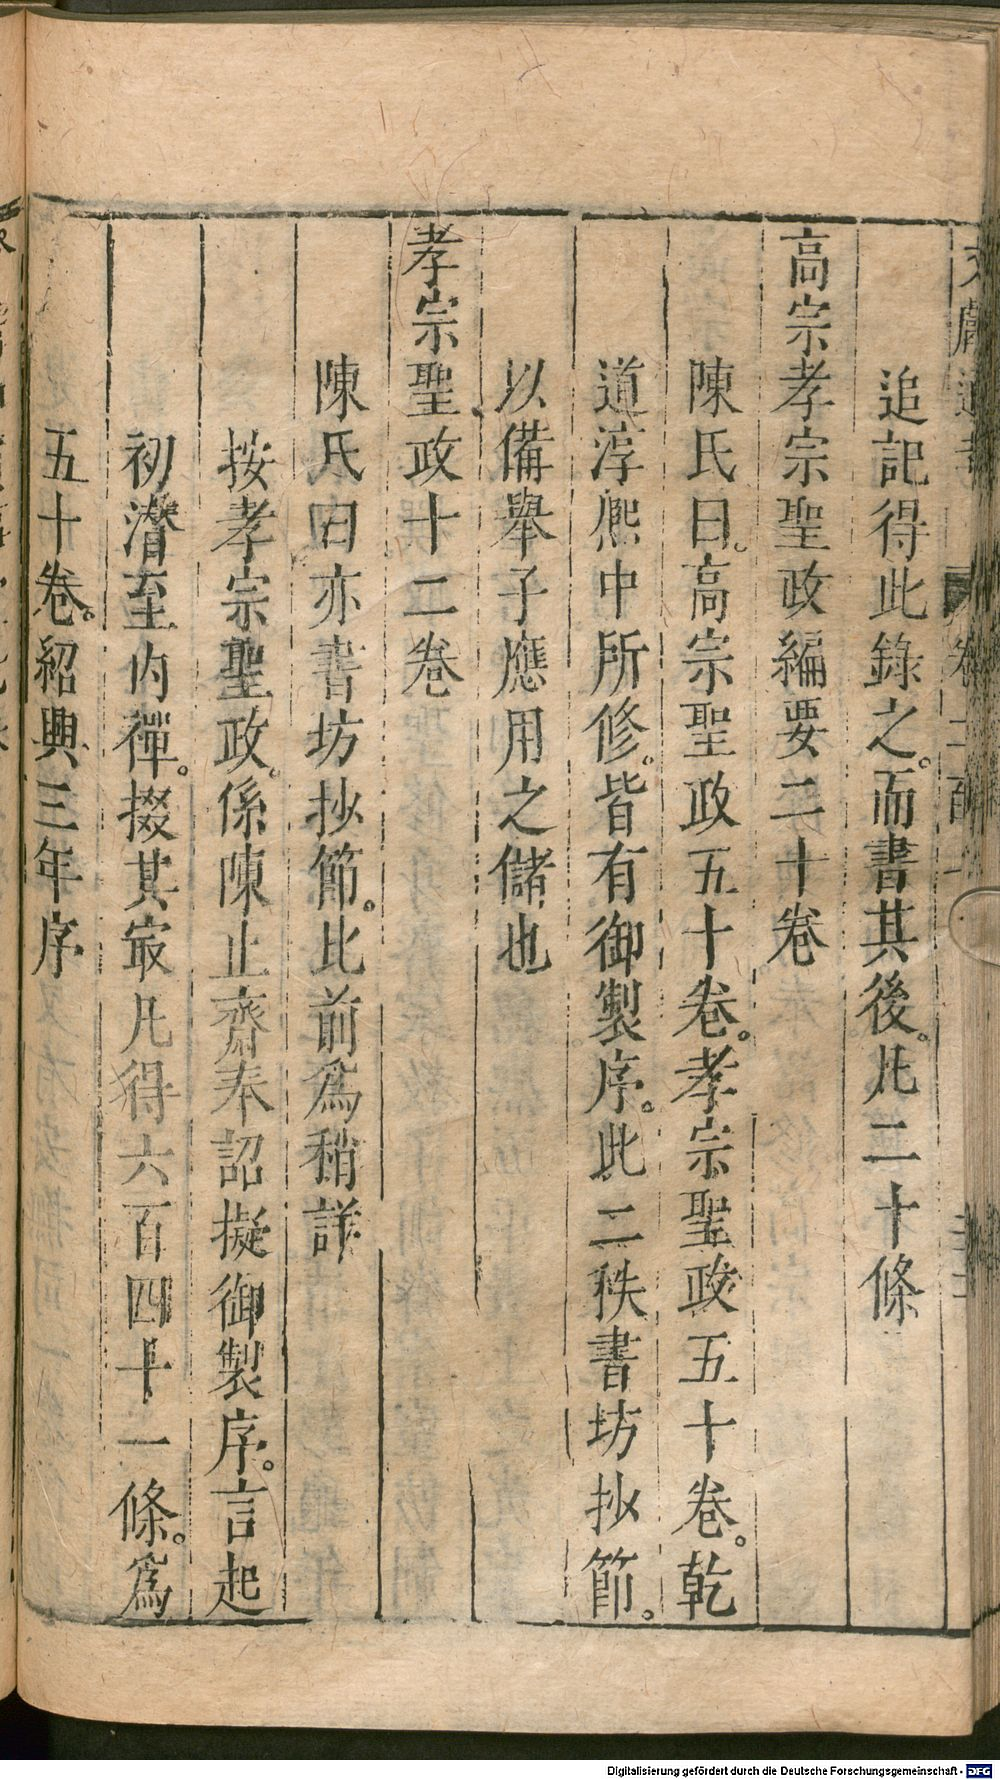 追記得此錄之。而書其後。凡二十條
高宗孝宗聖政編要二十卷
陳氏曰。高宗聖政五十卷。孝宗聖政五十卷。乾
道淳熈中所修。皆有御製序。此二秩書坊抄節。
以備舉子應用之儲也
孝宗聖政十二卷
陳氏曰亦書坊抄節。比前爲稍詳
按孝宗聖政。係陳止齋奉詔擬御製序。言起
初潛至内禪。掇其㝡凡得六百四十一條。爲
五十卷。紹興三年序
Digitalisierung gefördert durch die Deutsche Forschungsgemeinschaft - DFG